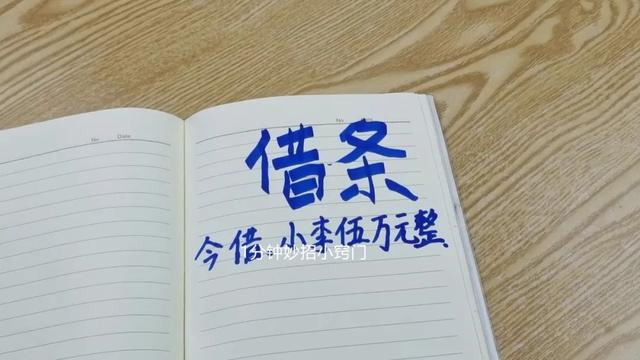 No Date
No Date
借条
今借小李伍万元整
1分钟妙招小窍门